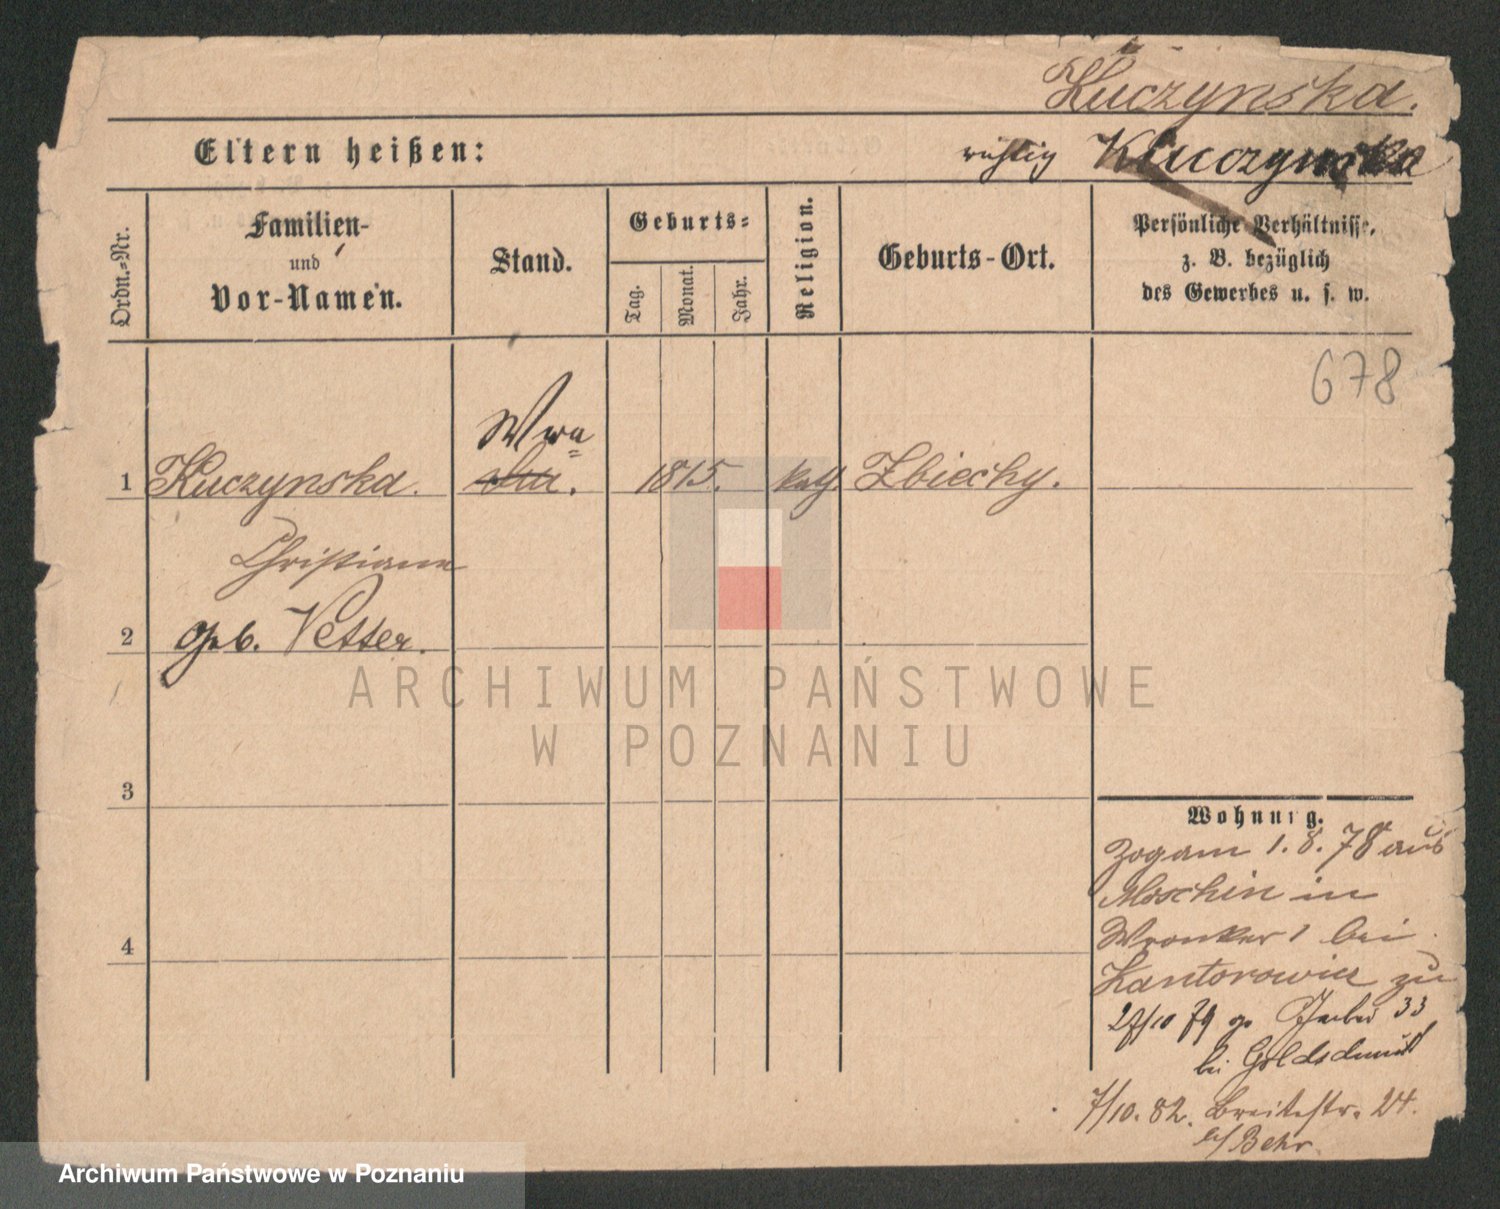 Kuczynska.
Eltern heißen:
richtig Kluczynska
Ordn.-Nr.
Familien-
und
Vor-Namen.
Stand.
Geburts-
Tag.
Monat.
Jahr.
Religion.
Geburts-Ort.
Persönliche Verhältnisse,
z. B. bezüglich
des Gewerbes u. s. w.
678
Wwa
1 Kuczynska. 1815. kath. Zbiechy.
Christiana
2 geb. Vetter.
ARCHIWUM PAŃSTWOWE
W POZNANIU
3
Wohnung.
Zog am 1.8.78 aus
Moschin in
Wronker 1 bei
4
Kantorowicz zu
27/10 79 33
bei Goldschmidt
7/10. 82. Breitestr. 24.
b/ Behr.
Archiwum Państwowe w Poznaniu